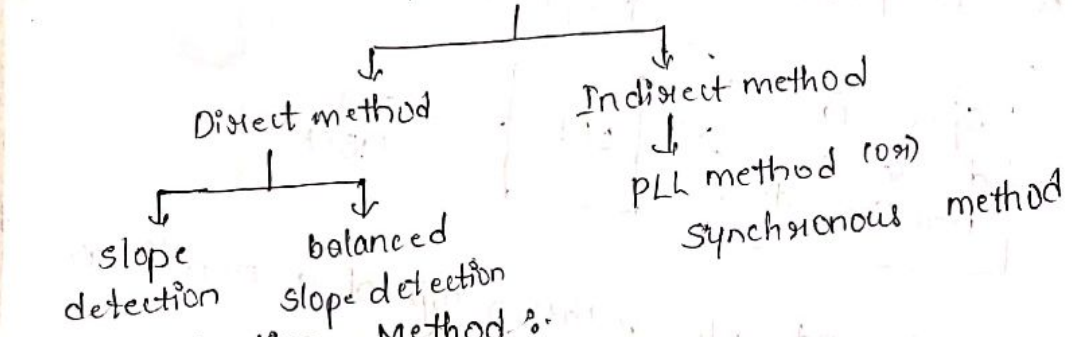 Direct method
Indirect method
PLL method (or)
Synchronous method
slope
detection
balanced
slope detection
Method :-